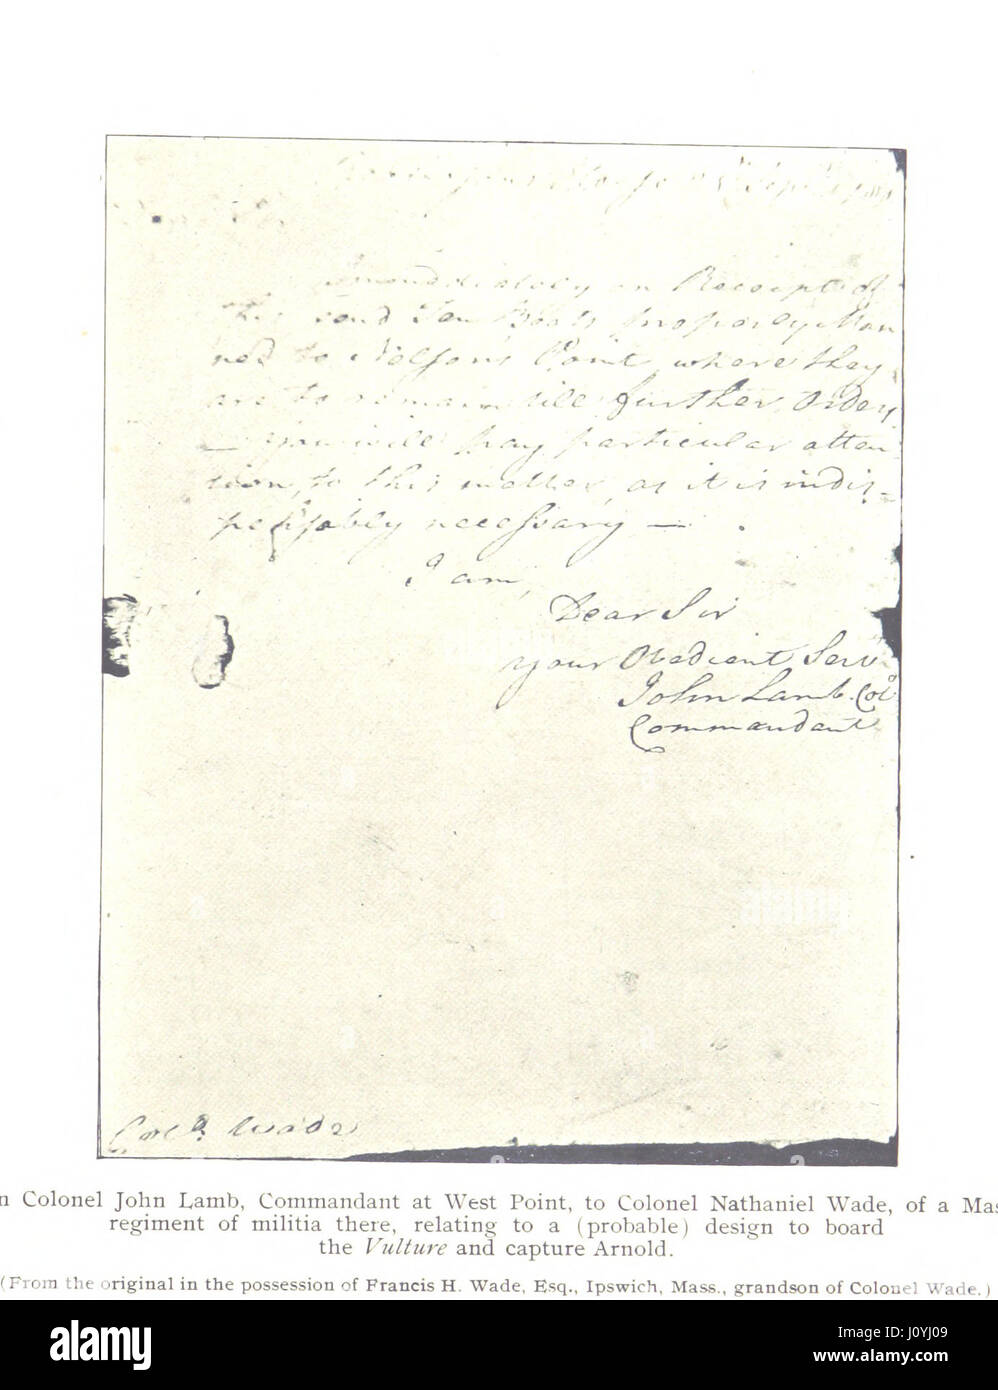 Sept
Immediately on Receipt of
this send Ten Boats properly Man
ned to Nelson's Point, where they
are to remain till further Orders
— You will pay particular atten
tion, to this matter, as it is indis-
pensably necessary —
I am,
Dear Sir
your Obedient Serv
John Lamb. Col
Commandant
Wade
n Colonel John Lamb, Commandant at West Point, to Colonel Nathaniel Wade, of a Mas
regiment of militia there, relating to a (probable) design to board
the Vulture and capture Arnold.
(From the original in the possession of Francis H. Wade, Esq., Ipswich, Mass., grandson of Colonel Wade.)
alamy
Image ID: J0YJ09
www.alamy.com